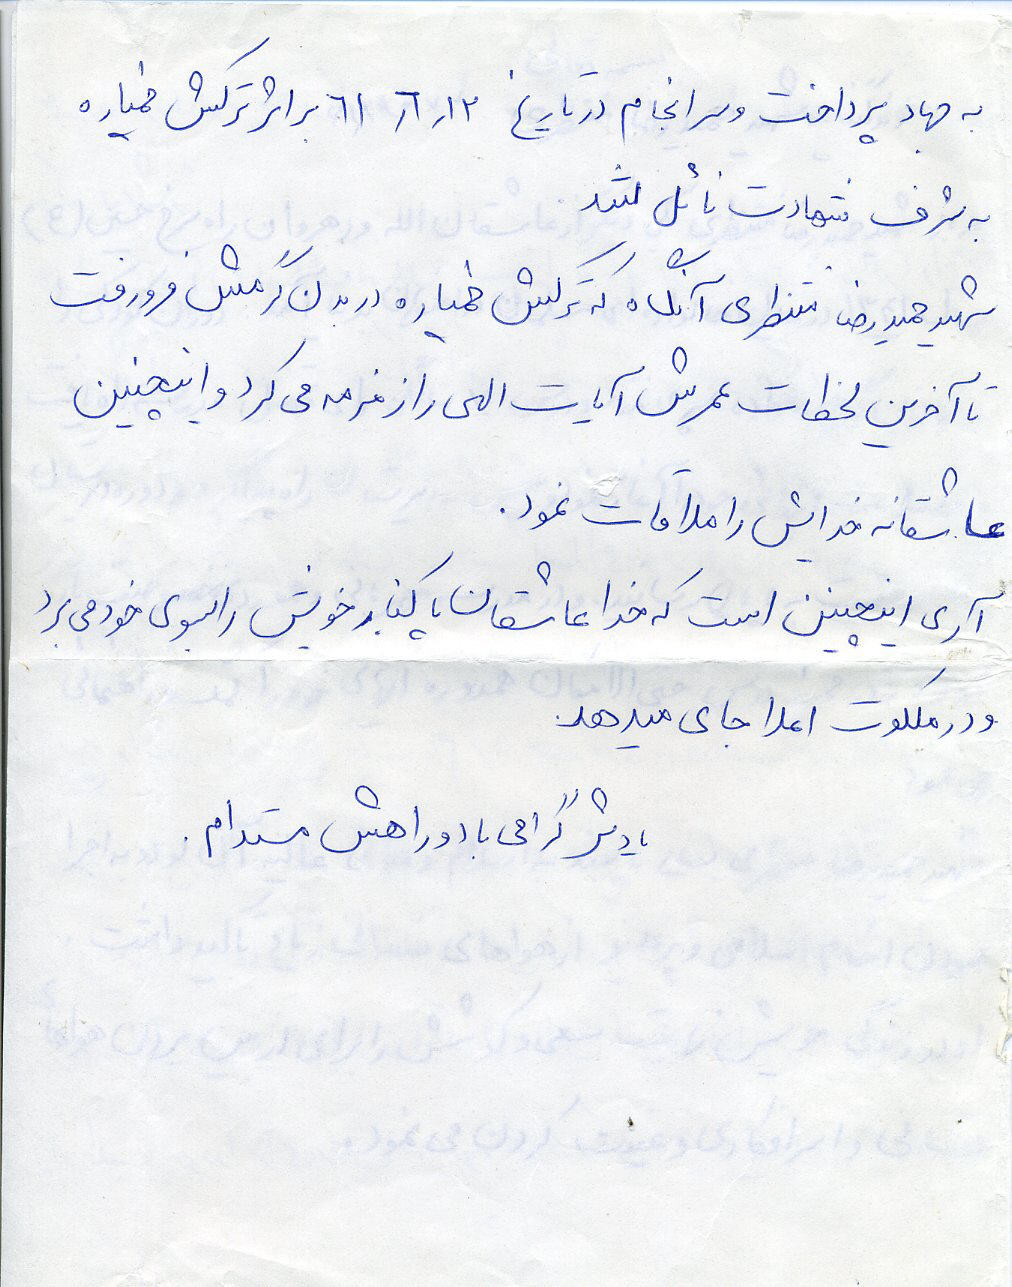 به جهاد پرداخت و سرانجام در تاریخ ۶۱/۶/۱۲ بر اثر ترکش خمپاره
به شرف شهادت نائل شد.
شهید حمیدرضا منتظری آنگاه که ترکش خمپاره در بدن گرمش فرو رفت
تا آخرین لحظات عمرش آیات الهی را زمزمه می کرد و اینچنین
عاشقانه خدایش را ملاقات نمود.
آری اینچنین است که خدا عاشقان پاکباز خویش را بسوی خود می برد
و در ملکوت اعلا جای میدهد.
یادش گرامی باد و راهش مستدام.